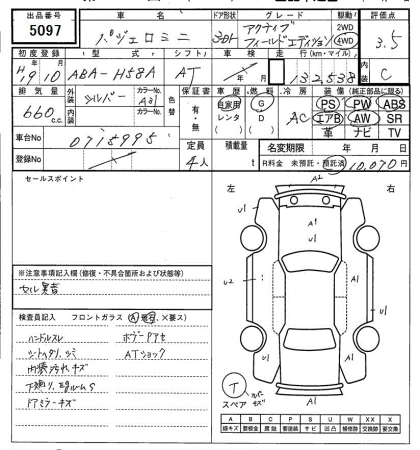 出品番号 車名 ドア形状 グレード 駆動 評価点
5097 パジェロミニ 3Dr アクティブフィールドエディション 2WD 4WD 3.5
初度登録 型式 シフト 車検 走行(km・マイル) 内装
H19 10 ABA-H58A AT 132,538 C
排気量 外装 シルバー カラーNo. A31 色替 保証書 車歴 燃料 冷房 装備(純正部品に限る)
660 c.c. 内装 カラーNo. 有・無 自家用 G AC PS PW ABS
レンタ D エアB AW SR
( ) ( ) 革 ナビ TV
車台No 0715995 定員 積載量 名変期限 年 月 日
登録No 4人 t R料金 未預託・預託済 10,070円
セールスポイント
左 A2 右
U1 A1 U1
※注意事項記入欄(修復・不具合箇所および状態等)
セル異音
U2 A1
検査員記入 フロントガラス(A、X要ス)
ハンドルスレ ボデーアセ
シートヘタリ、シミ ATショック
内装汚れキズ
ドアミラーキズ
U1 U1 A1
T
スペア
A1
A B C P S U W X XX
線キズ 要板金 腐蝕 要塗装 サビ 凹凸 補修跡 要交換 交換跡